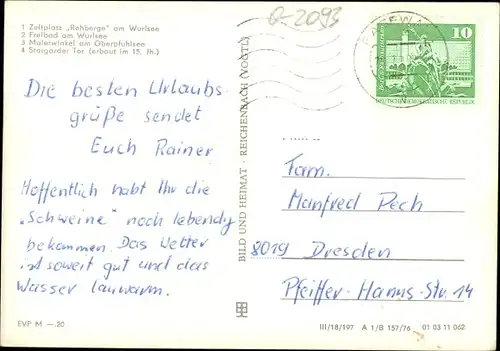 1 Zeltplatz „Rehberge" am Wurlsee
2 Freibad am Wurlsee
3 Malerwinkel am Oberpfuhlsee
4 Stargarder Tor (erbaut im 15. Jh.)
Q-2093
10
DEUTSCHE DEMOKRATISCHE REPUBLIK
Die besten Urlaubs-
grüße sendet
Euch Rainer
Hoffentlich habt Ihr die
„Schweine" noch lebendig
bekommen. Das Wetter
ist soweit gut und das
Wasser lauwarm.
BILD UND HEIMAT · REICHENBACH (VOGTL)
Fam.
Manfred Pech
8019 Dresden
Pfeiffer-Hanns-Str. 14
EVP M —.20
III/18/197 A 1/B 157/76 01 03 11 062